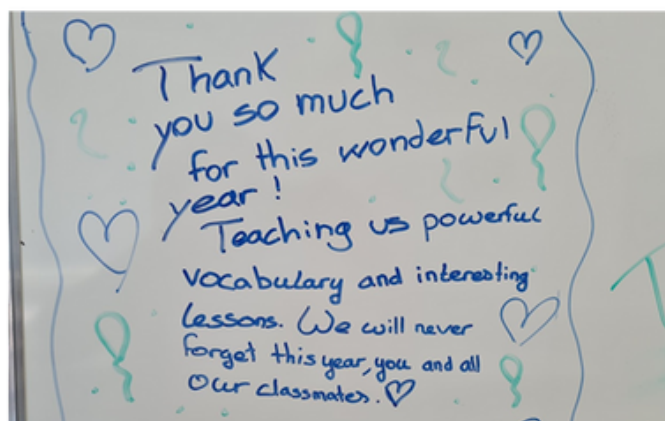 Thank
you so much
for this wonderful
year!
Teaching us powerful
vocabulary and interesting
lessons. We will never
forget this year, you and all
our classmates.